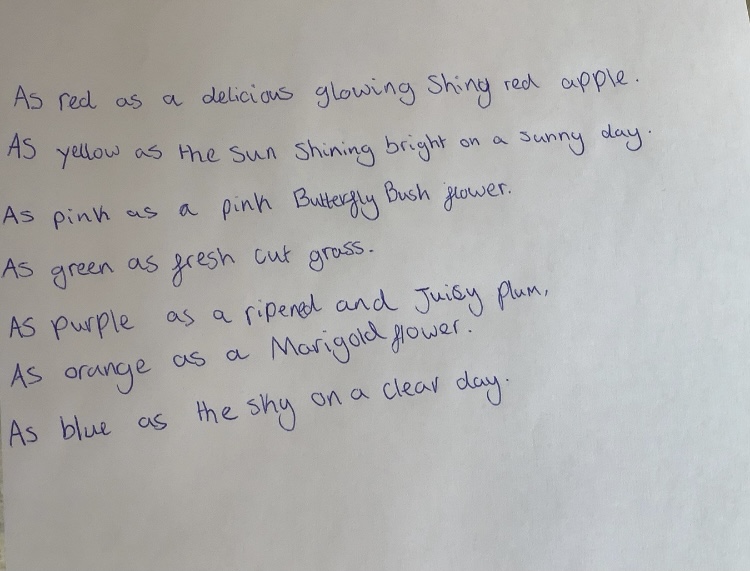 As red as a delicious glowing Shiny red apple.
As yellow as the Sun Shining bright on a sunny day.
As pink as a pink Butterfly Bush flower.
As green as fresh cut grass.
As purple as a ripened and Juisy plum,
As orange as a Marigold flower.
As blue as the sky on a clear day.